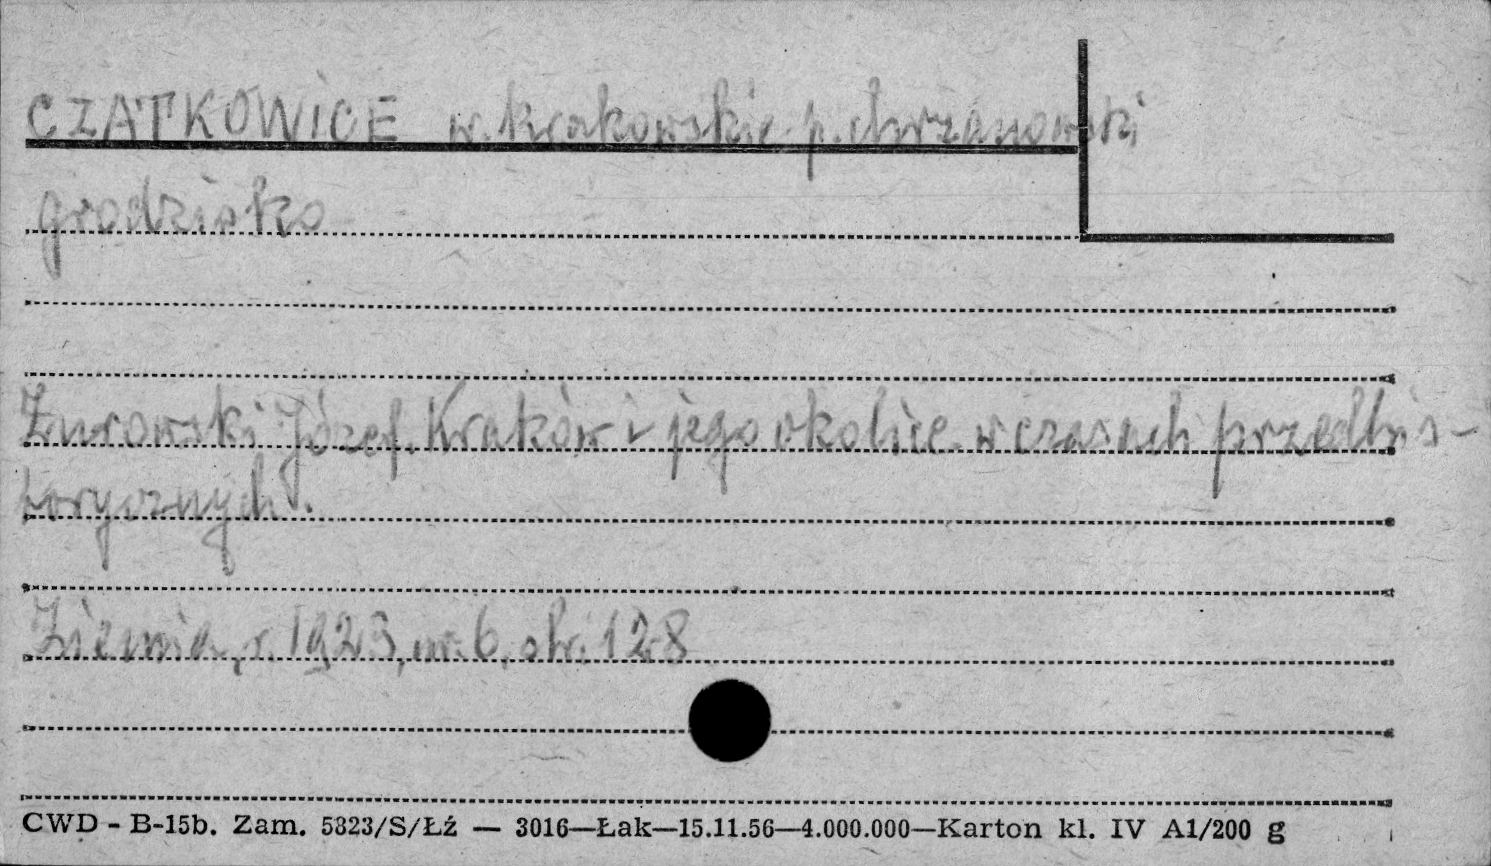 CZATKOWICE w. krakowskie p. chrzanowski
grodzisko
Żurowski Józef. Kraków i jego okolice w czasach przedhis-
torycznych.
Ziemia, r. 1923, nr. 6, str. 128
CWD - B-15b. Zam. 5323/S/Łź — 3016—Łak—15.11.56—4.000.000—Karton kl. IV A1/200 g